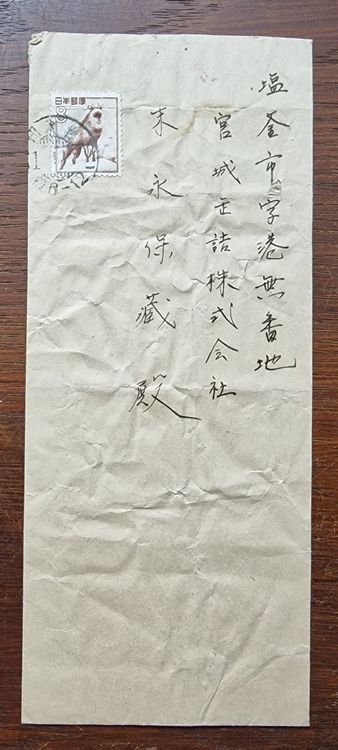 塩釜市字港無番地
宮城缶詰株式会社
末永保蔵殿
日本郵便